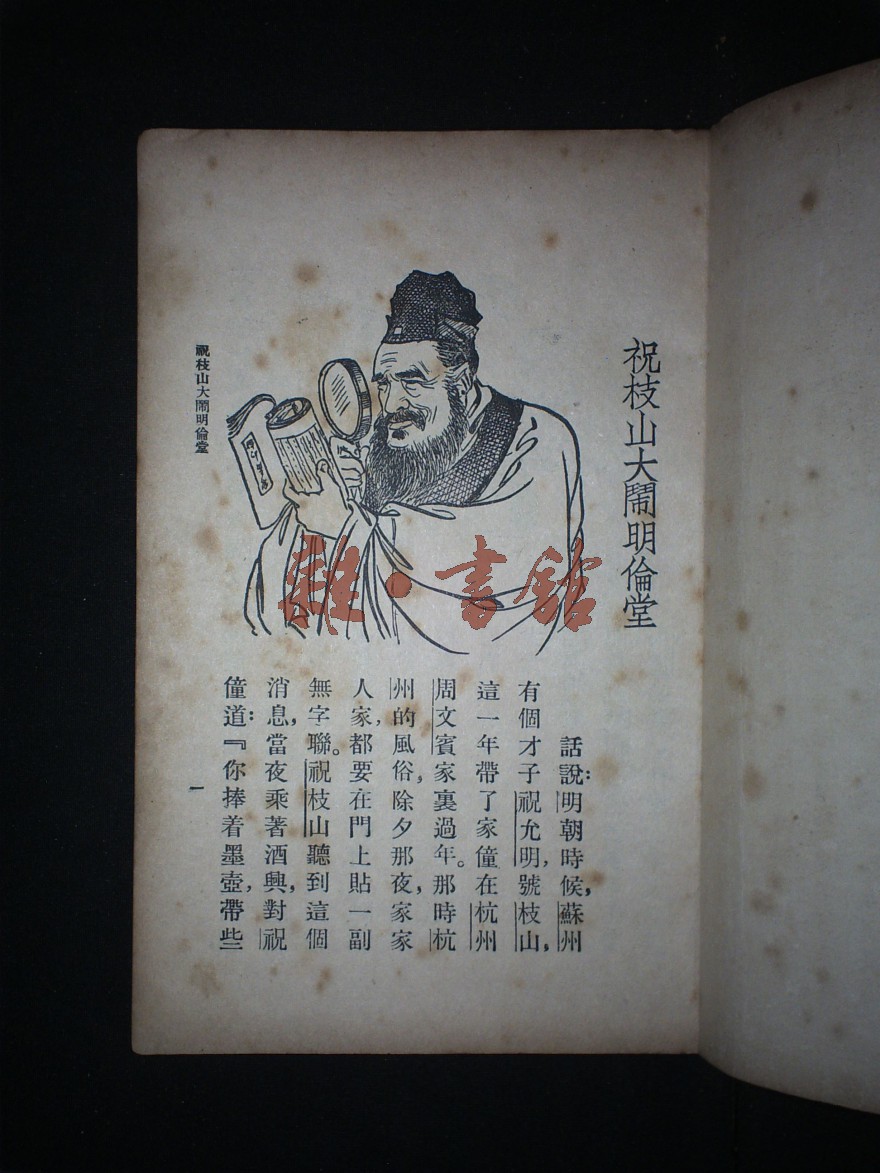 祝枝山大鬧明倫堂
話說：明朝時候，蘇州
有個才子祝允明，號枝山，
這一年帶了家僮在杭州
周文賓家裏過年。那時杭
州的風俗，除夕那夜，家家
人家，都要在門上貼一副
無字聯。祝枝山聽到這個
消息，當夜乘著酒興，對祝
僮道：『你捧着墨壺，帶些
祝枝山大鬧明倫堂
一
雜·書館